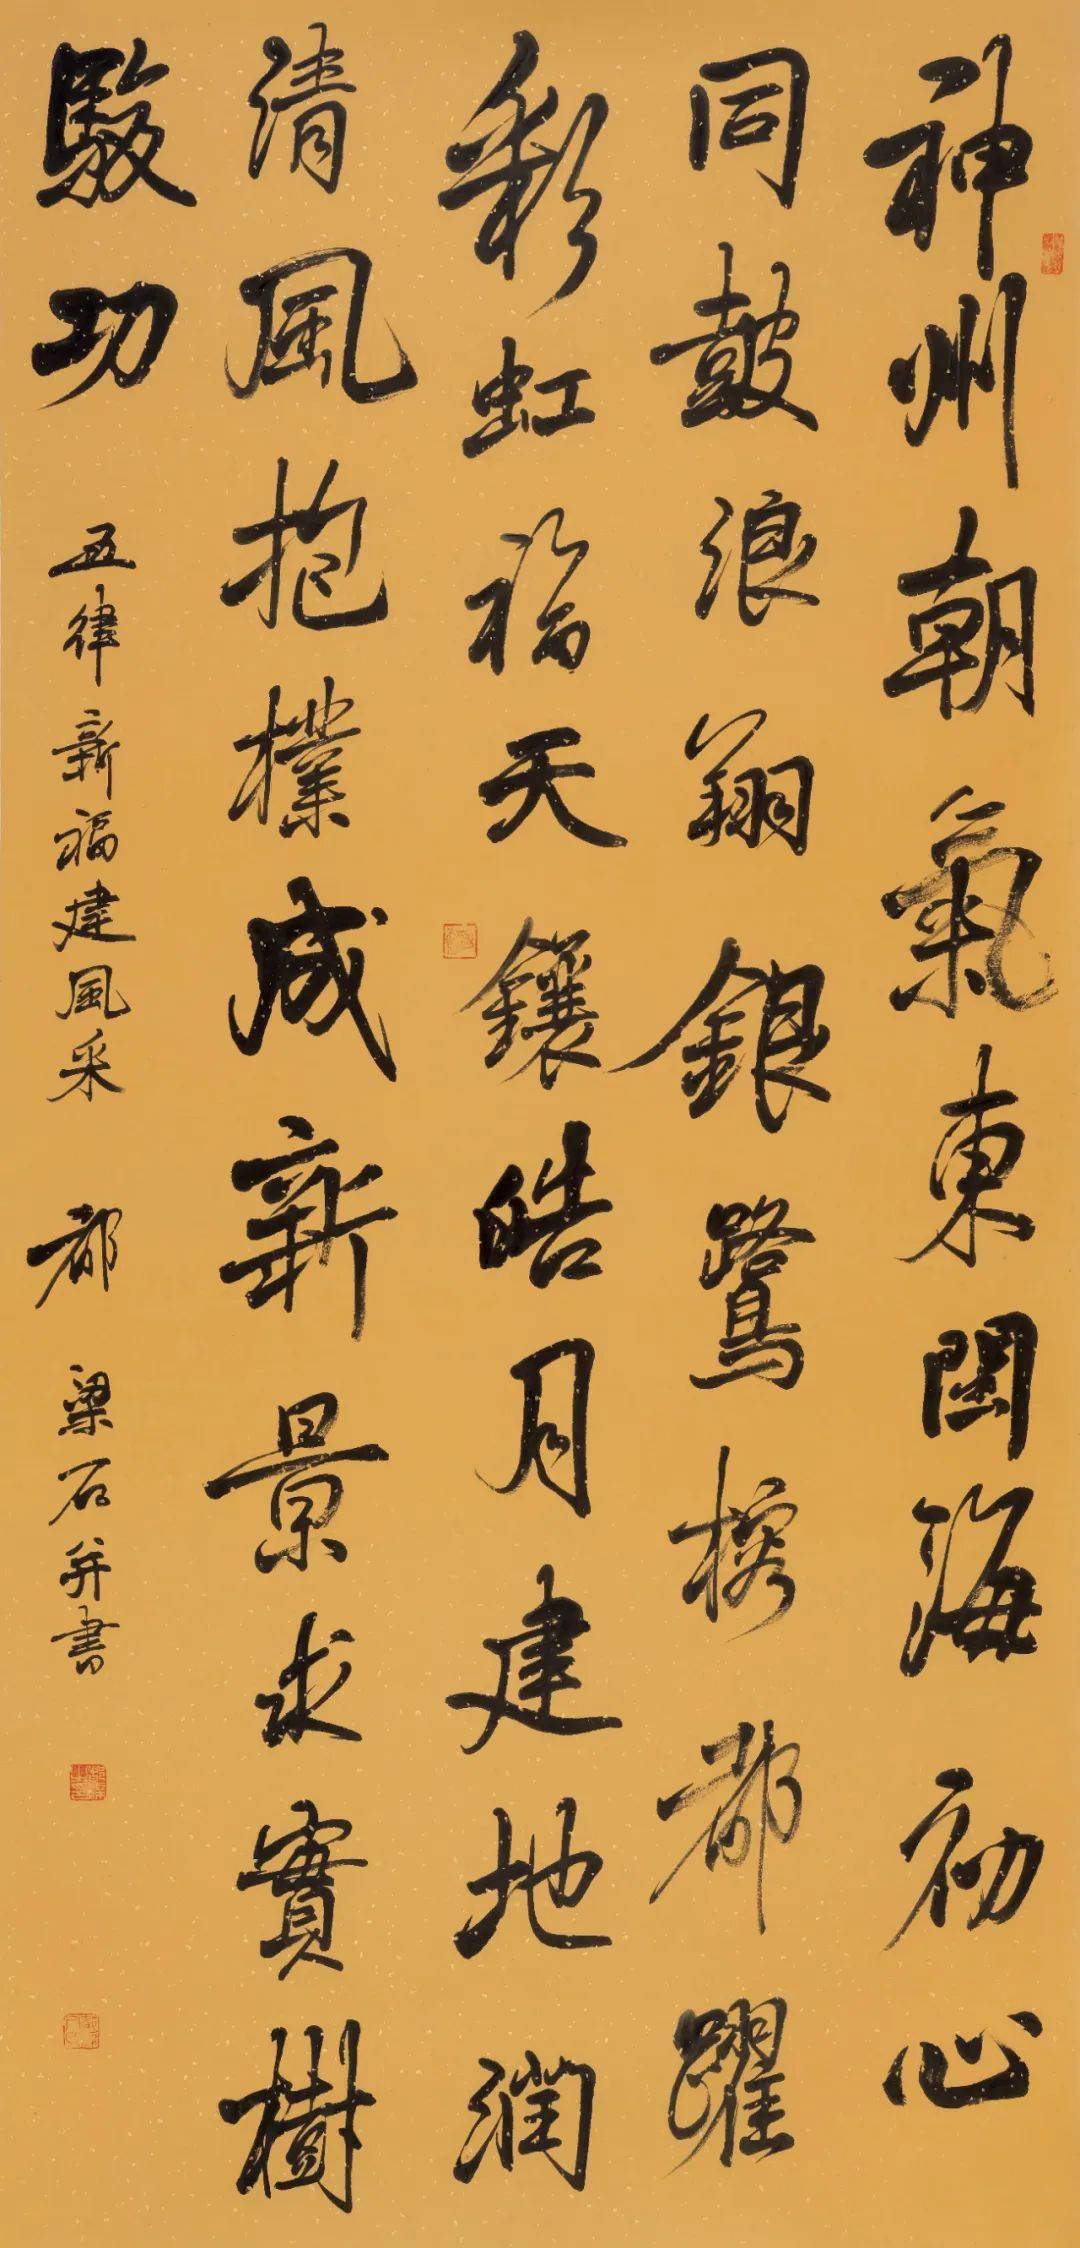 神州朝氣東閩海初心
同鼓浪翔銀鷺榕都躍
彩虹福天鑲皓月建地潤
清風抱樸成新景求實樹
駿功
五律新福建風采 都 梁石并書